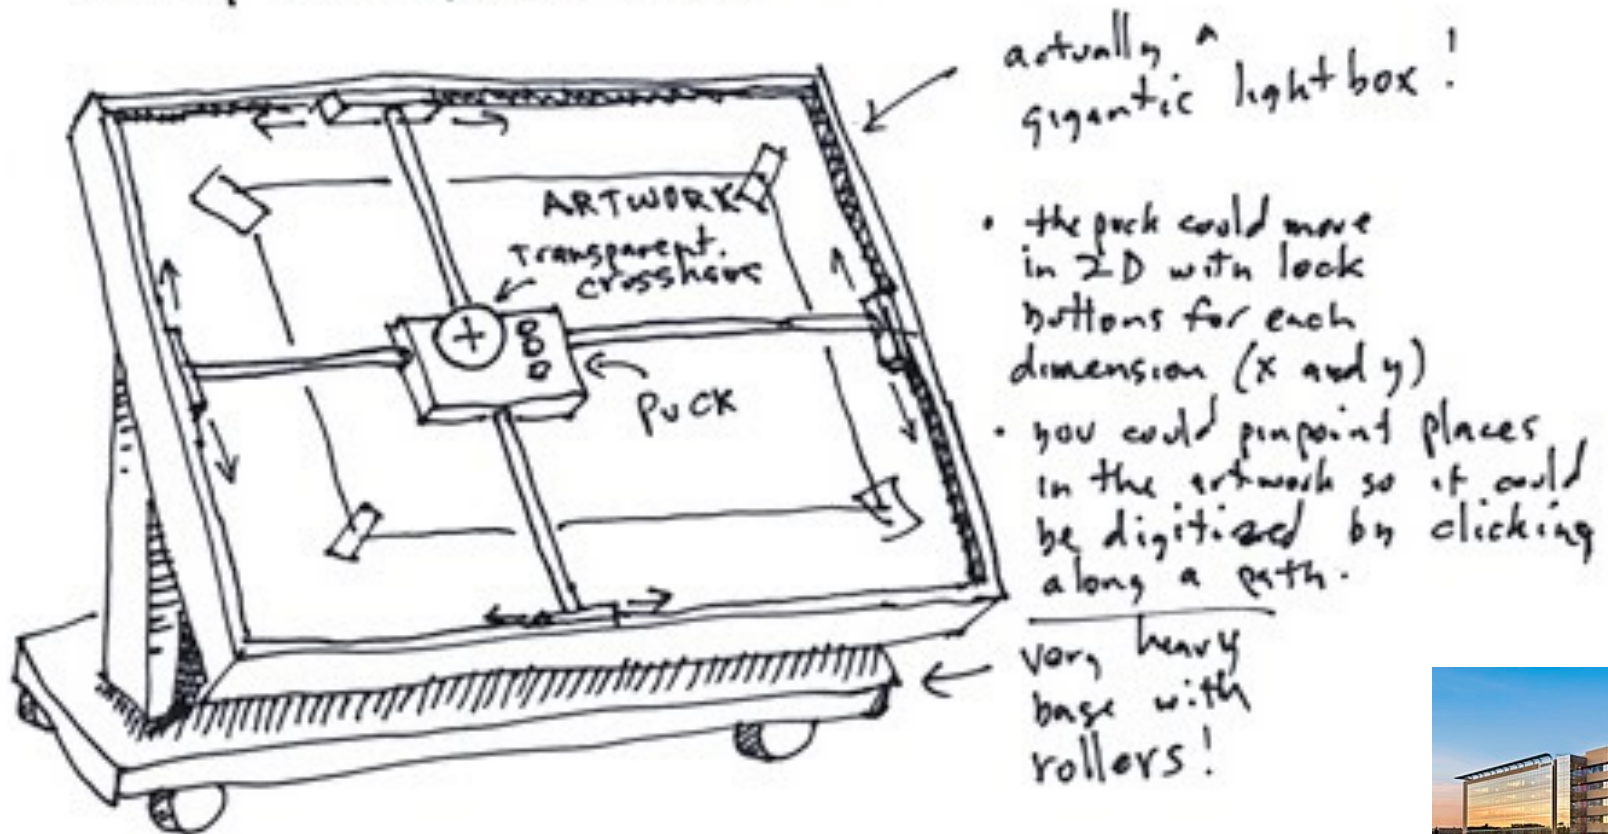 actually a
gigantic lightbox!
ARTWORK
Transparent.
crosshairs
PUCK
• the puck could move
in 2D with lock
buttons for each
dimension (x and y)
• you could pinpoint places
in the artwork so it could
be digitized by clicking
along a path.
very heavy
base with
rollers!